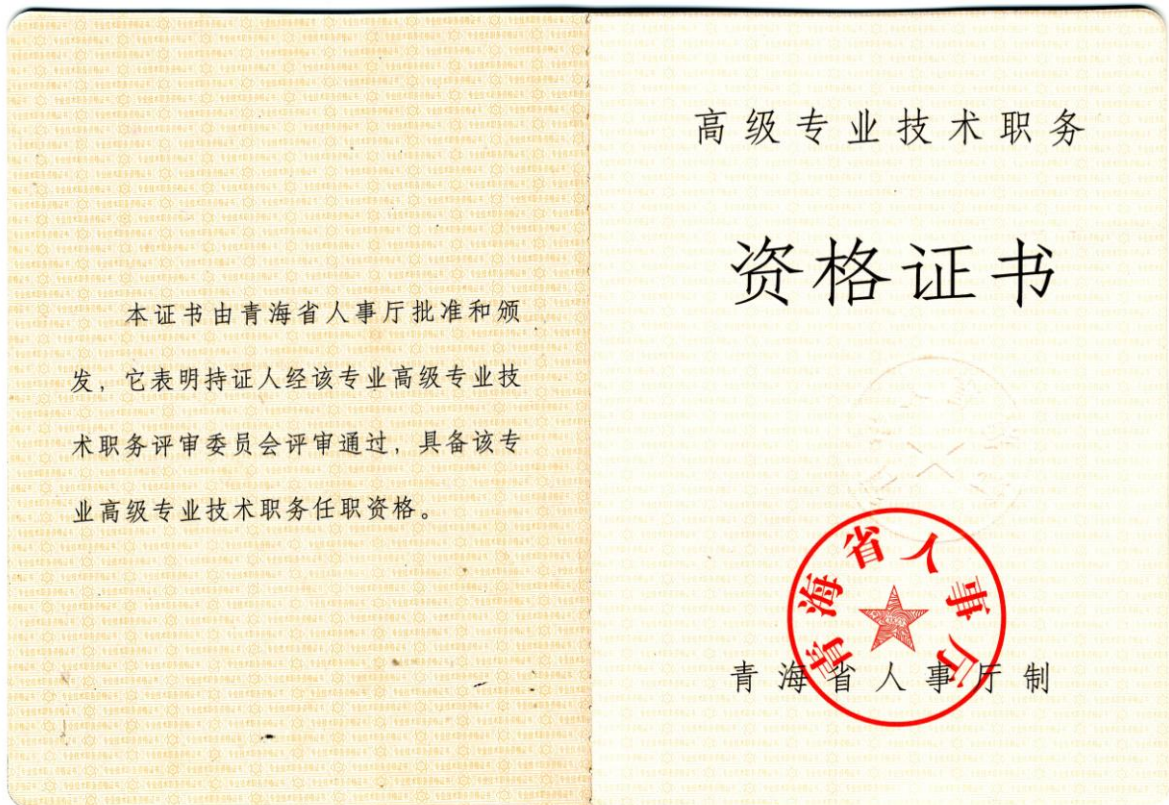 本证书由青海省人事厅批准和颁
发，它表明持证人经该专业高级专业技
术职务评审委员会评审通过，具备该专
业高级专业技术职务任职资格。
高级专业技术职务
资格证书
青海省人事厅
青海省人事厅制